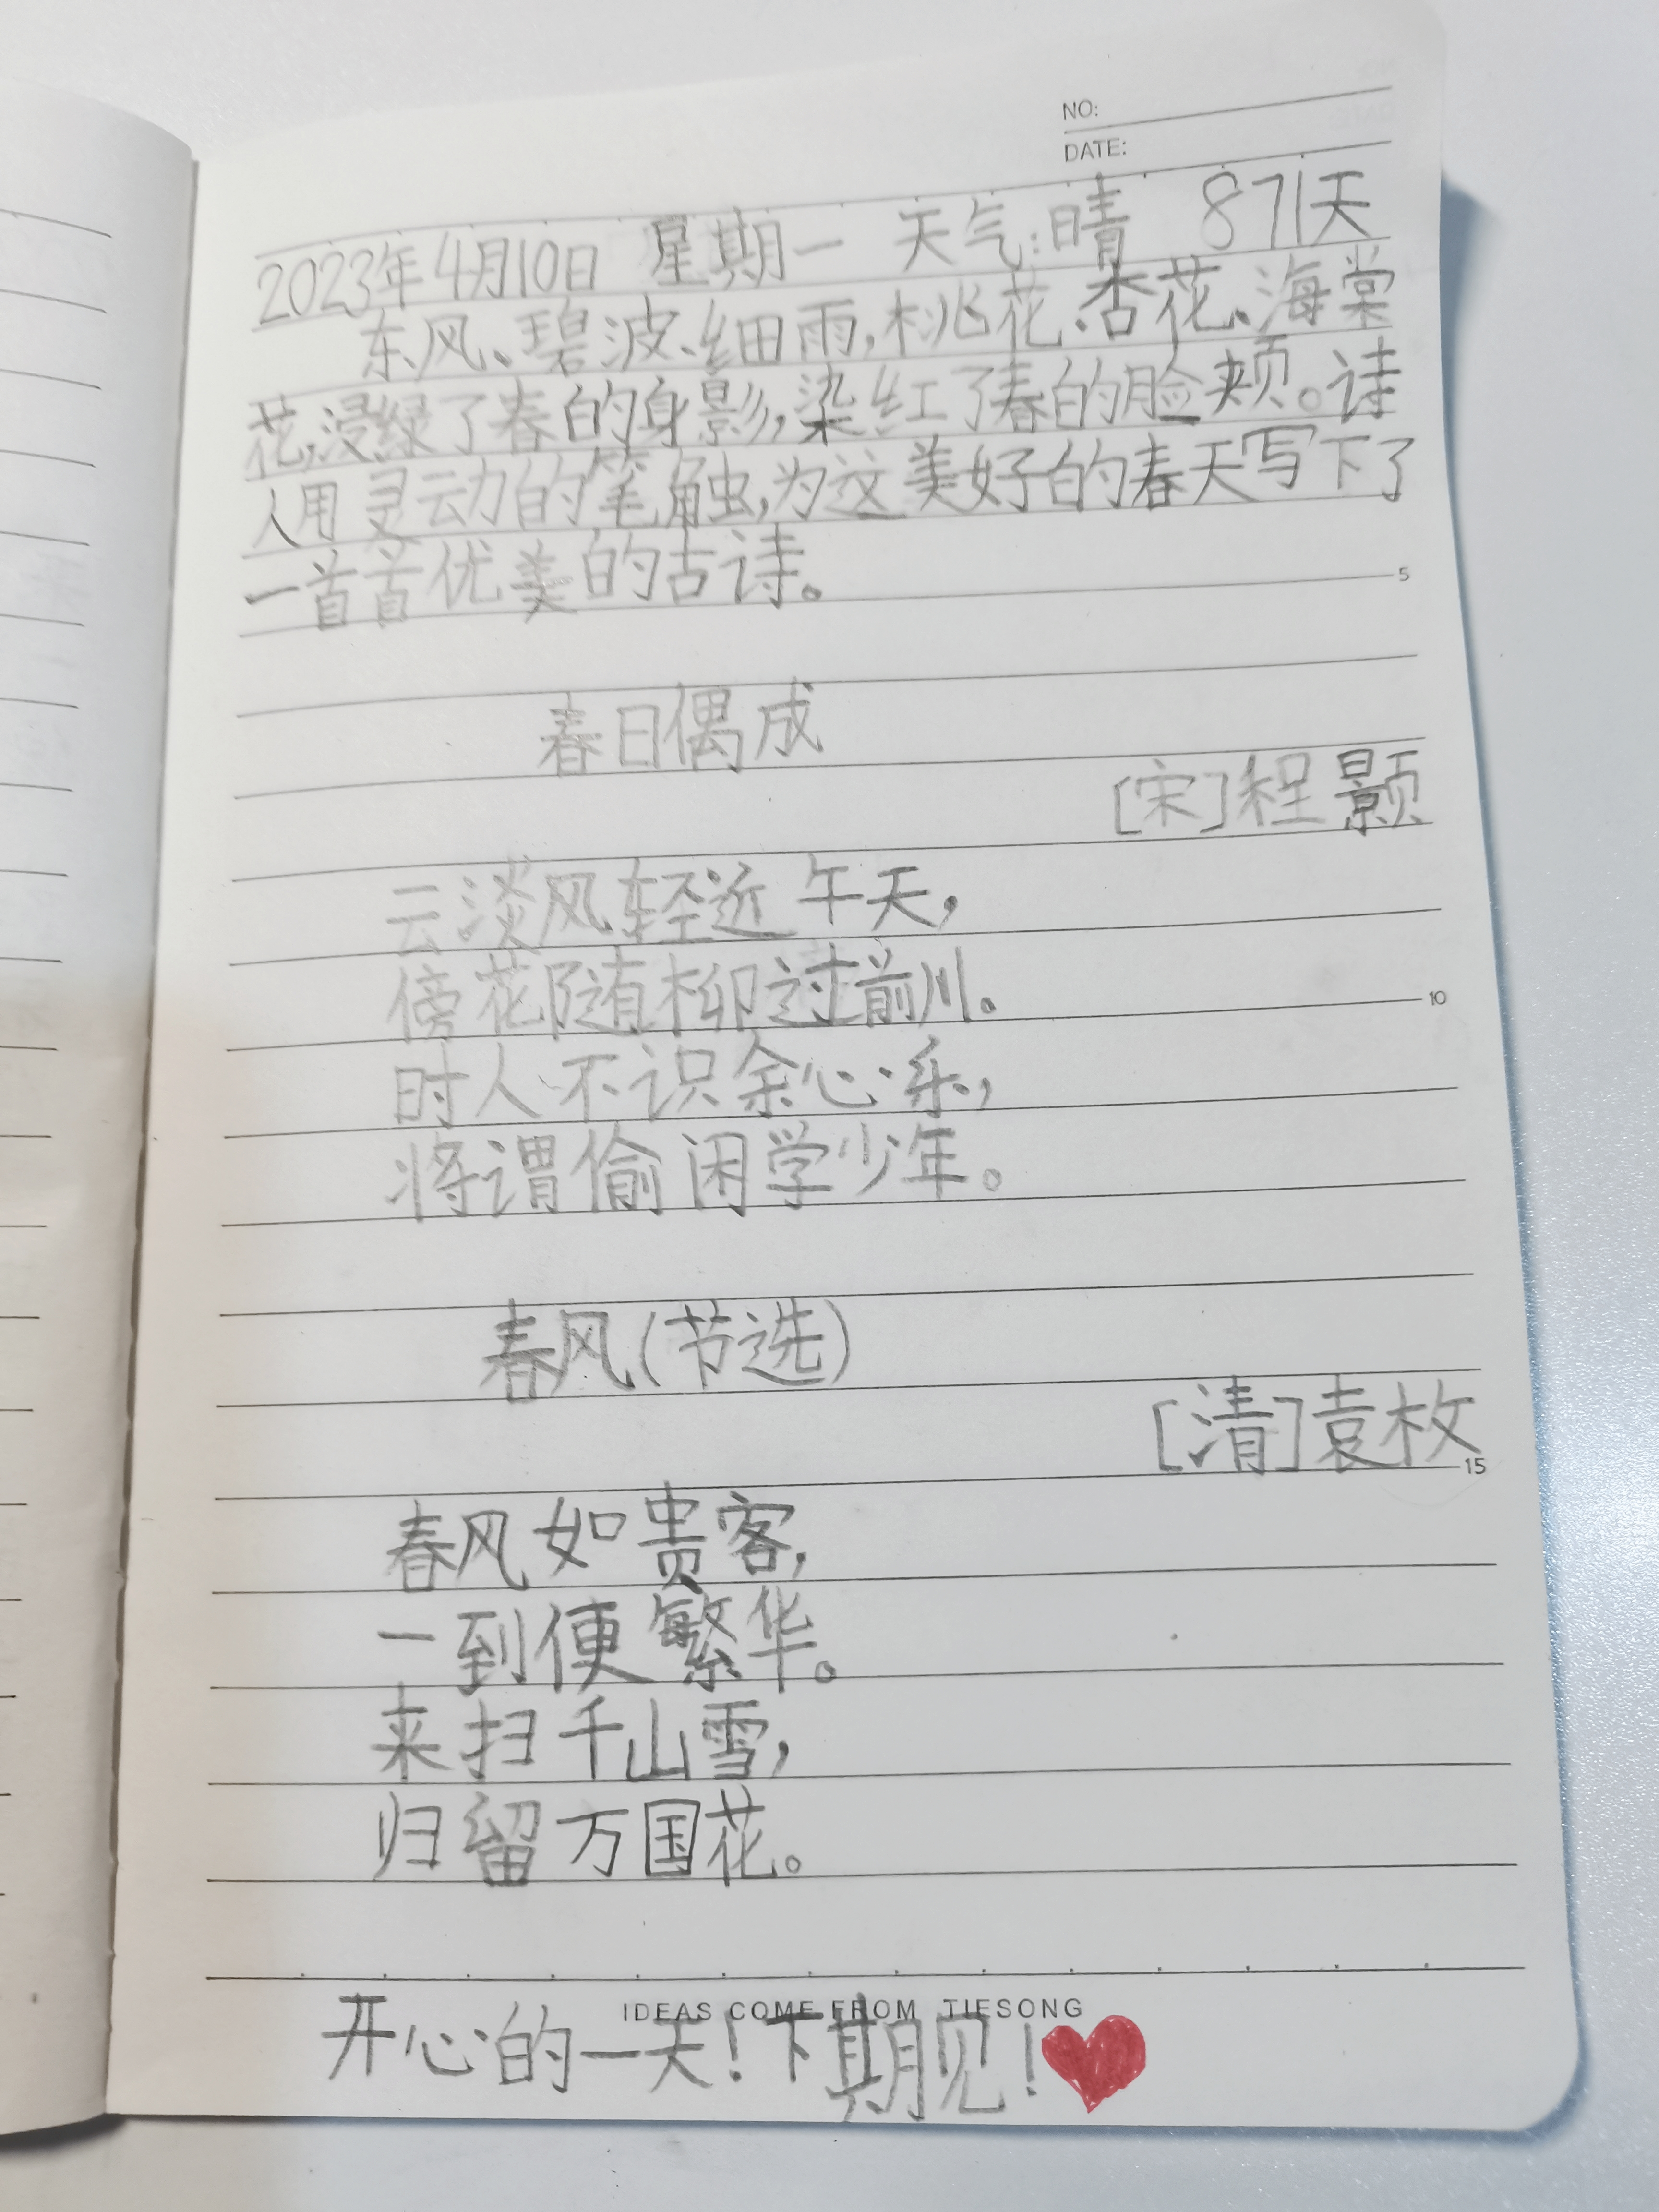 NO:
DATE:
2023年4月10日 星期一 天气:晴 871天
东风、碧波、细雨,桃花、杏花、海棠
花,浸绿了春的身影,染红了春的脸颊。诗
人用灵动的笔触,为这美好的春天写下了
一首首优美的古诗。
5
春日偶成
[宋]程颢
云淡风轻近午天,
傍花随柳过前川。
10
时人不识余心乐,
将谓偷闲学少年。
春风(节选)
[清]袁枚
15
春风如贵客,
一到便繁华。
来扫千山雪,
归留万国花。
IDEAS COME FROM TIESONG
开心的一天!下期见!